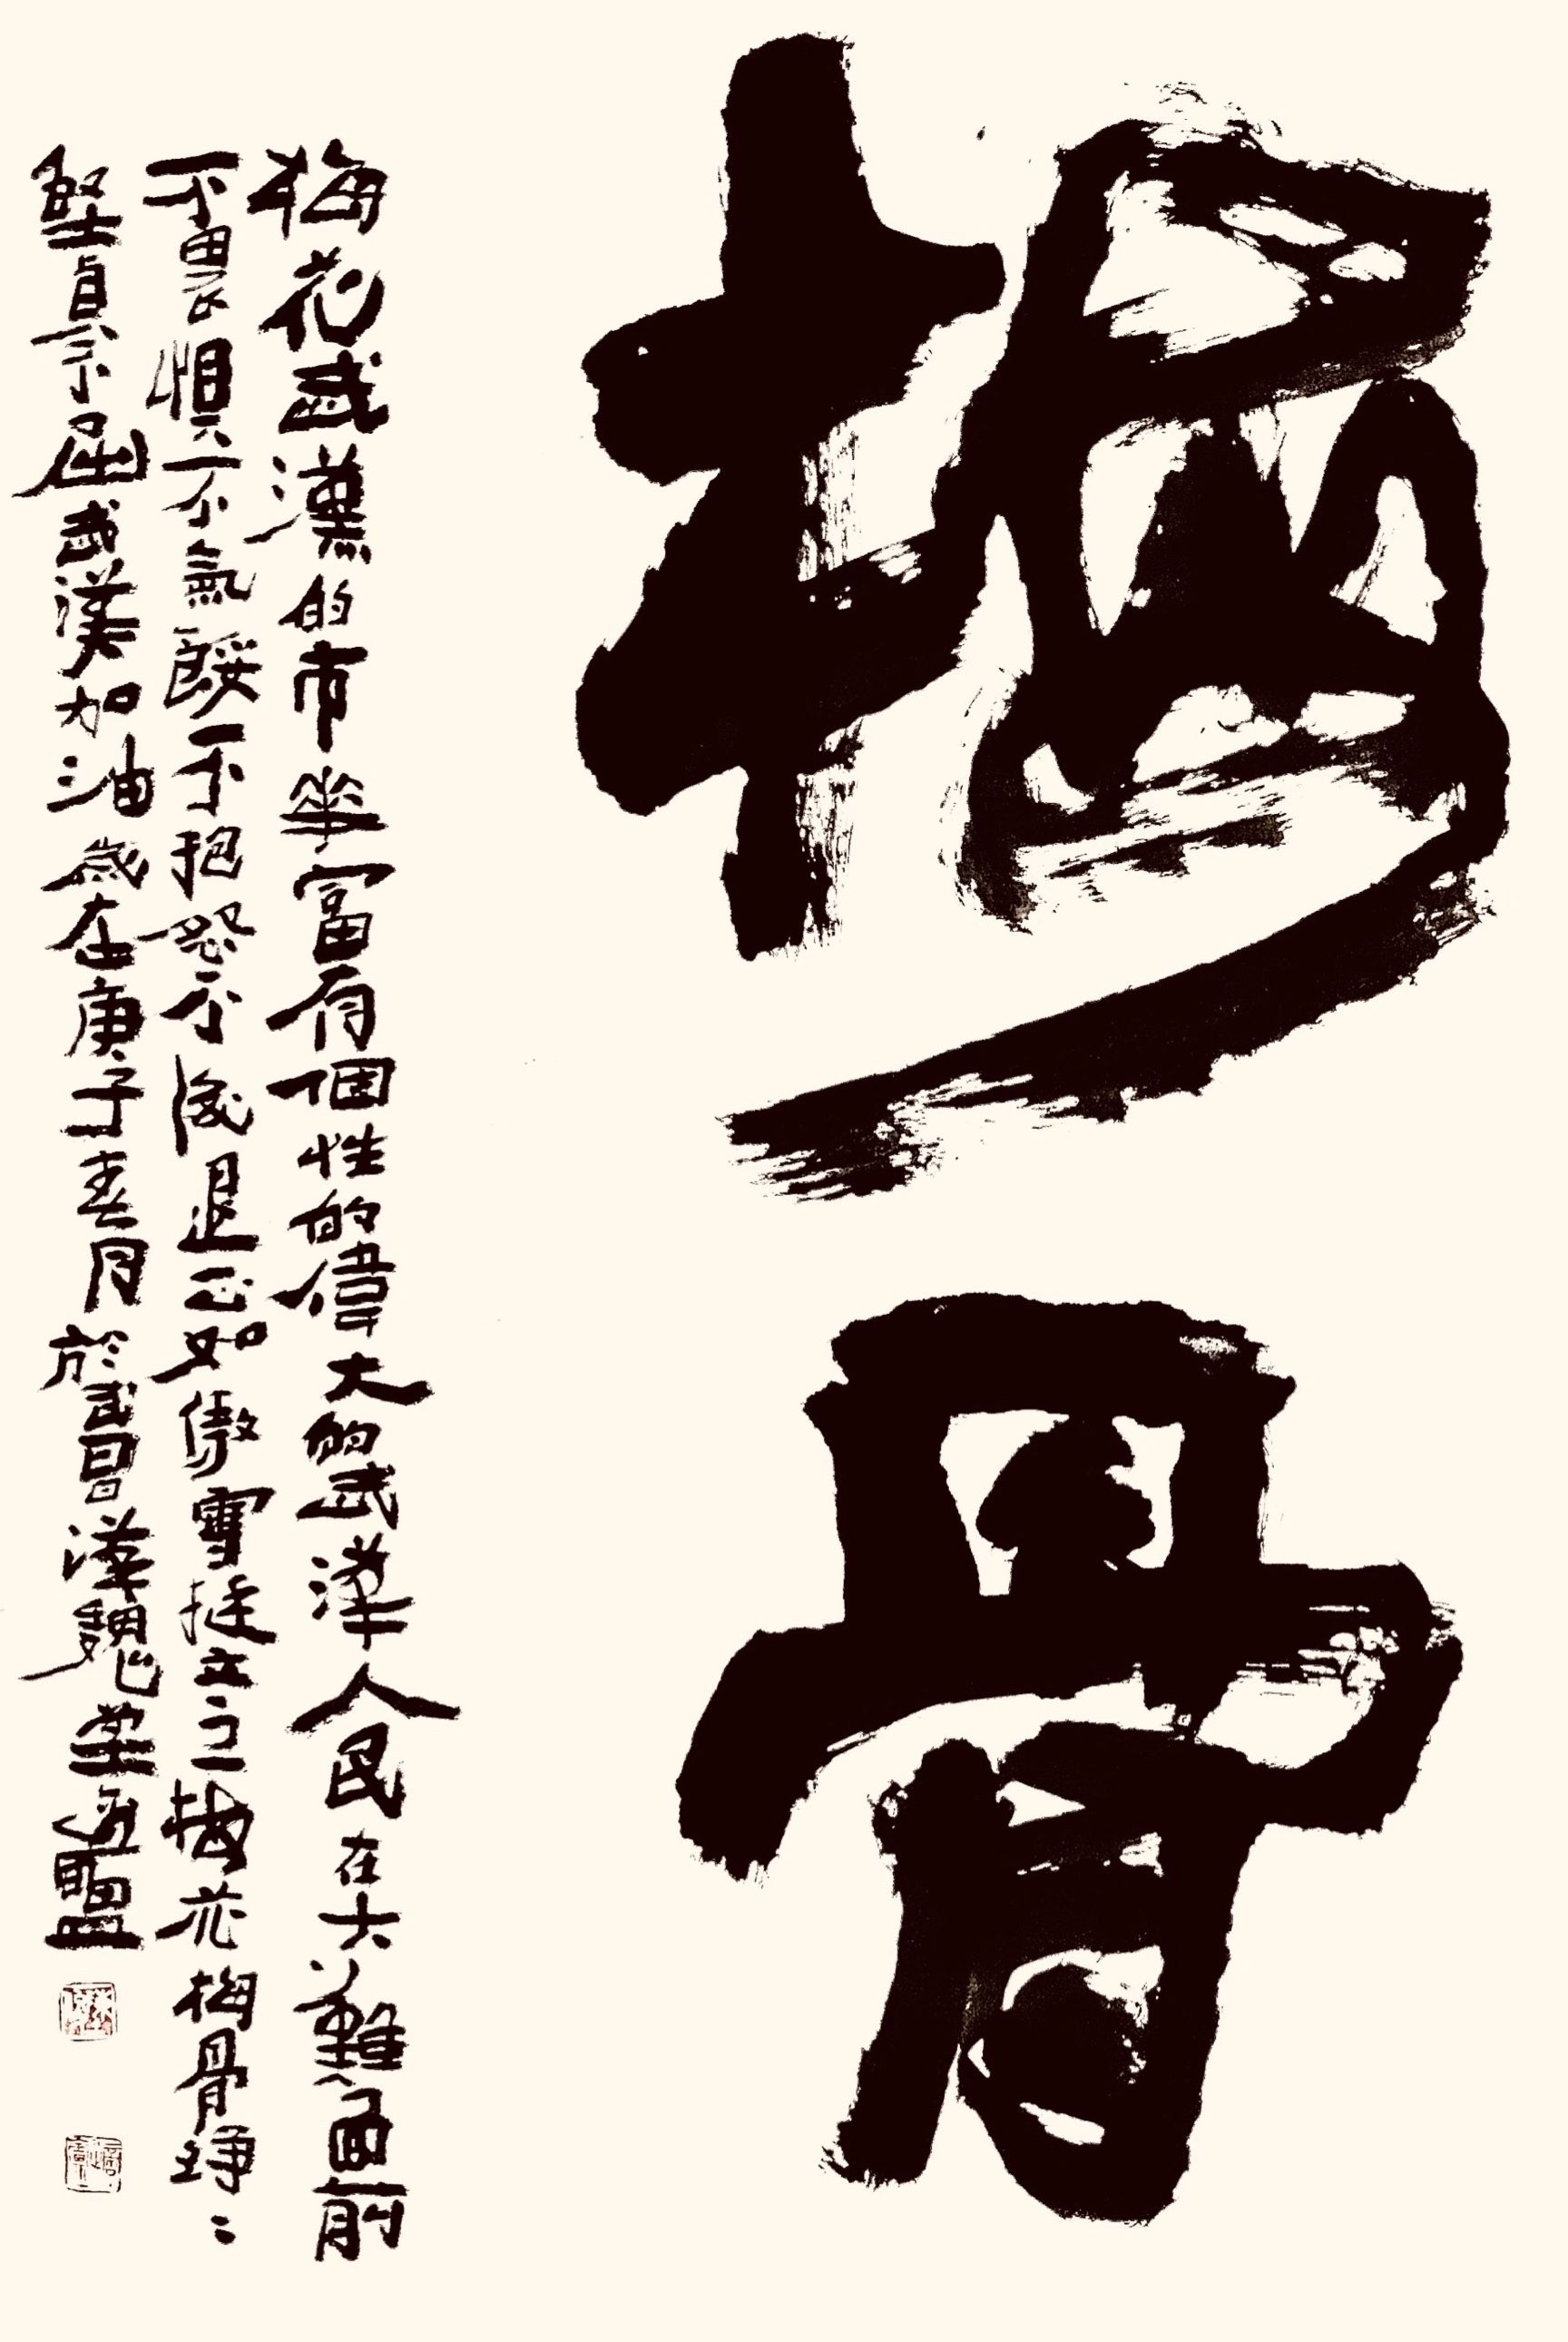 梅骨
梅花武漢的市華富有個性的偉大的武漢人民在大難面前
不畏惧不氣餒不抱怨不後退正如傲雪挺立之梅花梅骨錚〻
堅貞不屈武漢加油歲在庚子春月於武昌漢魏堂